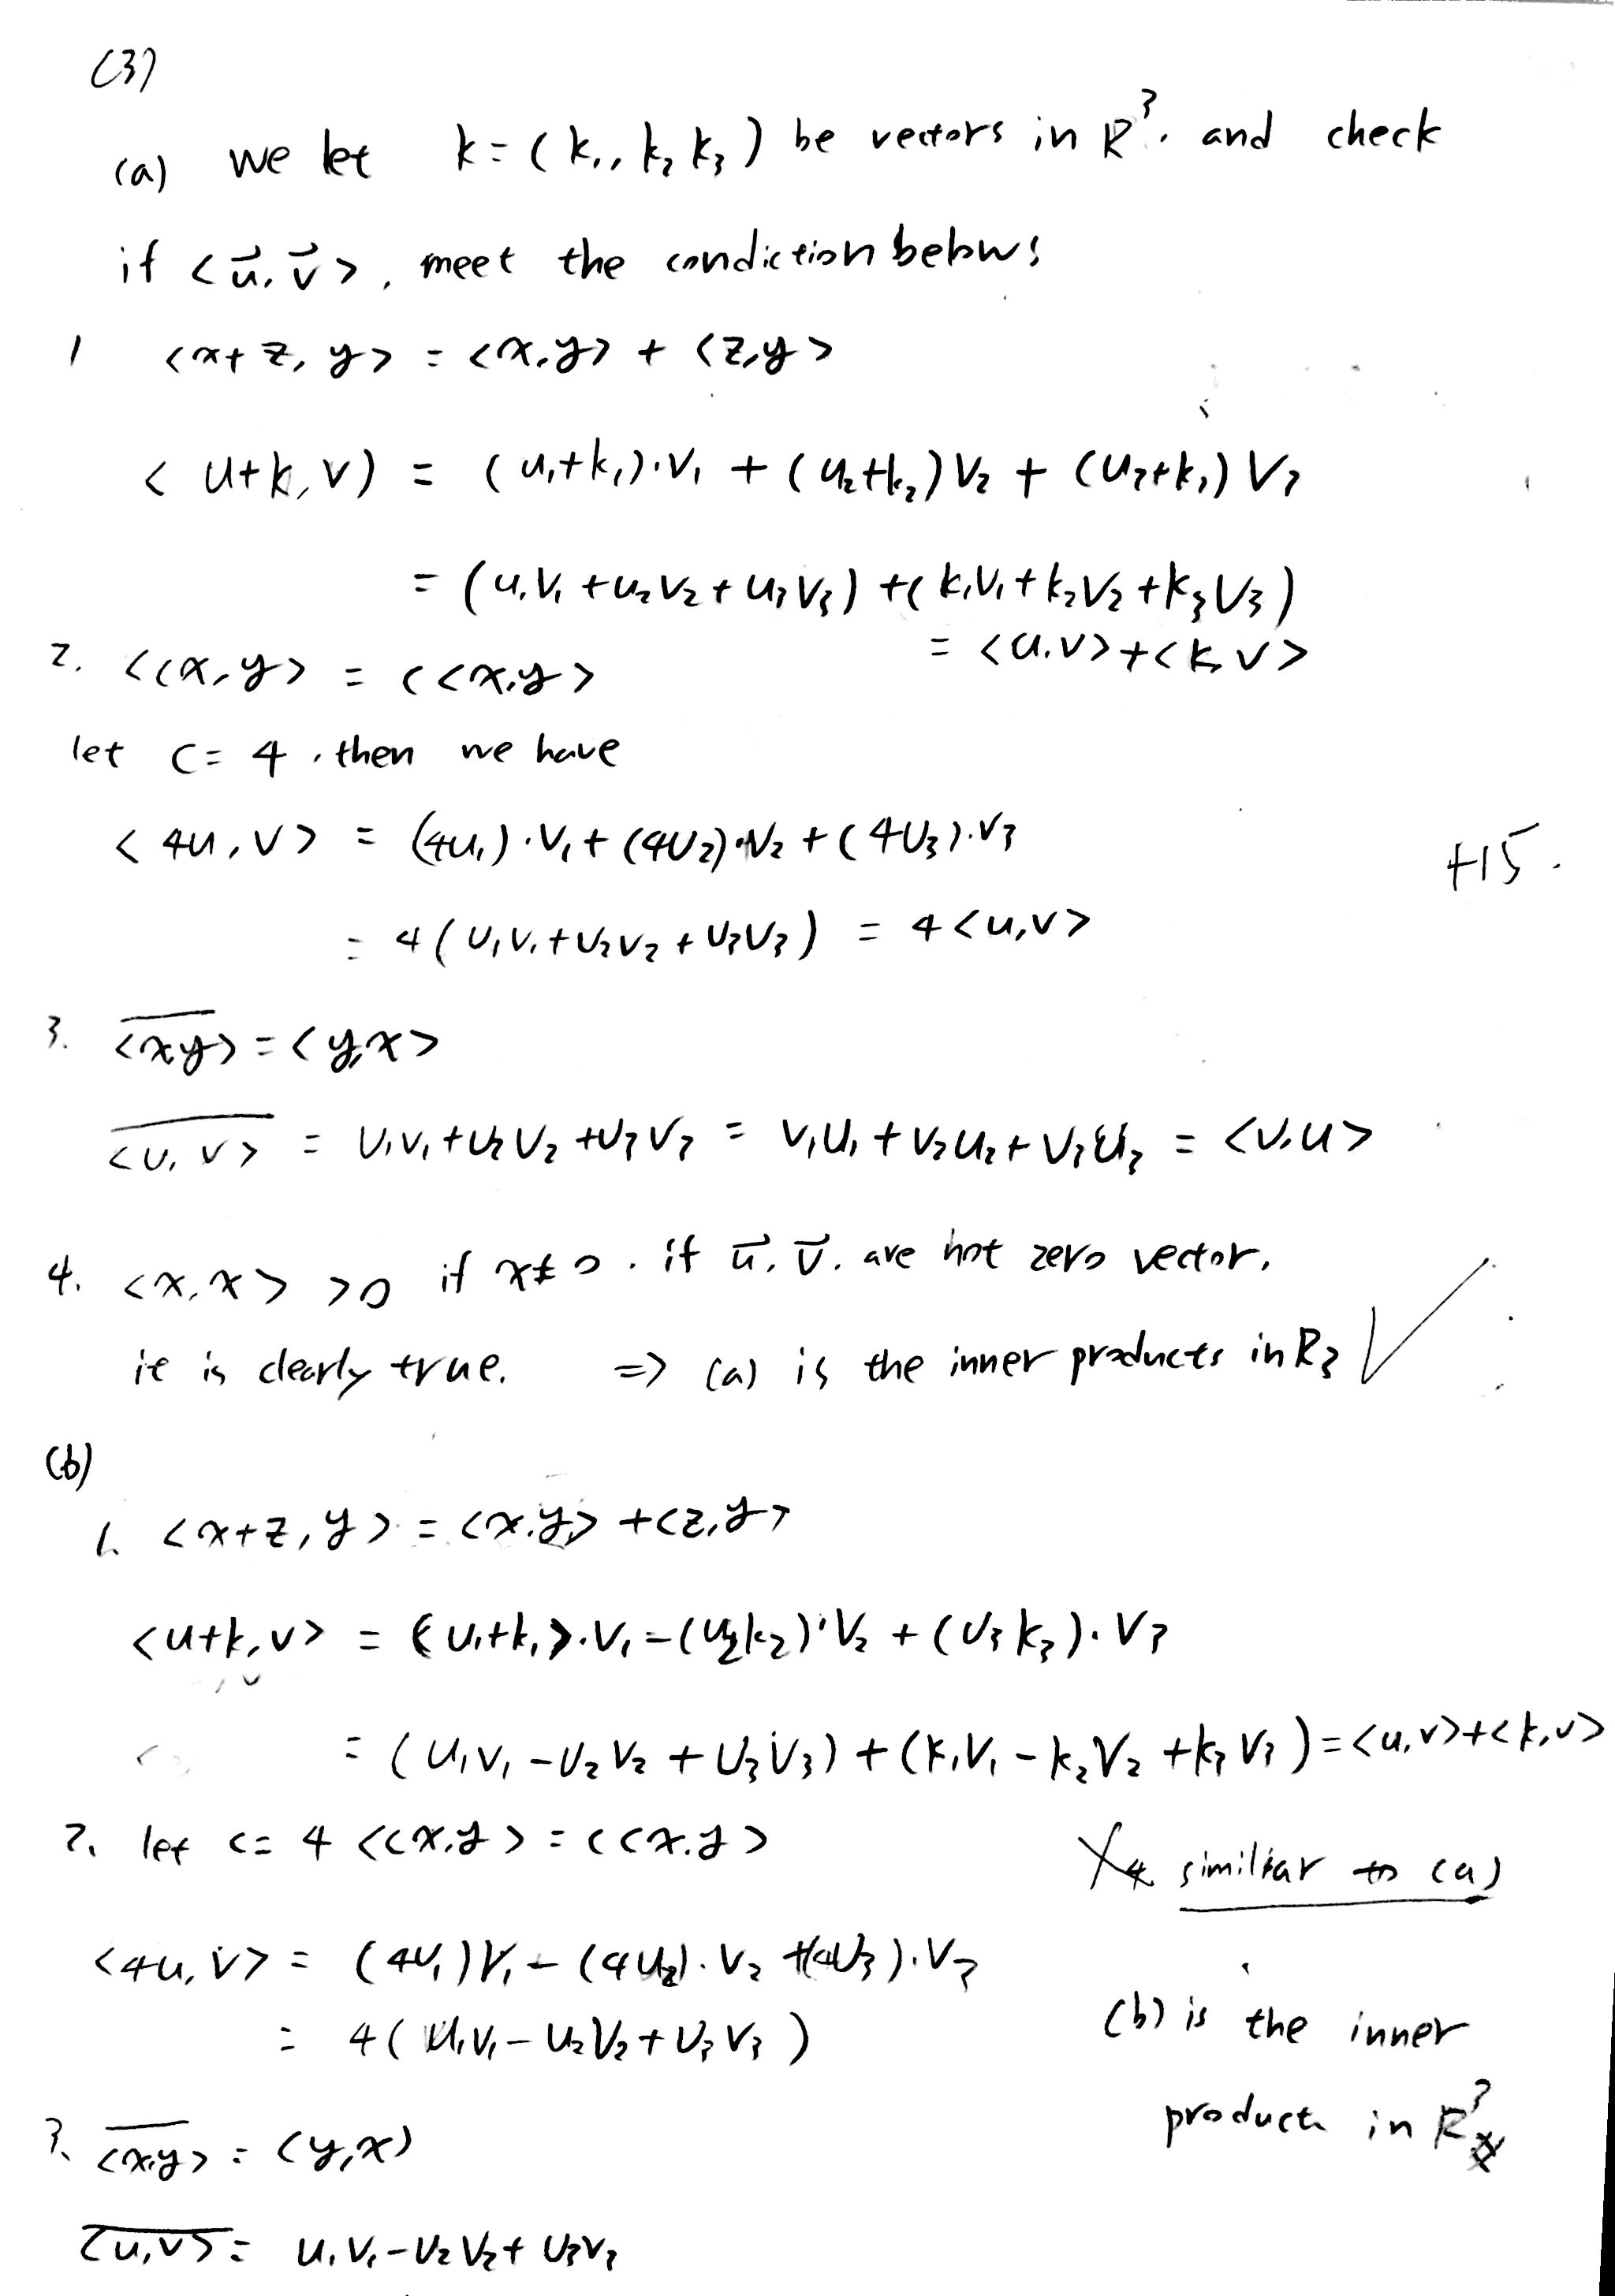 (3)
(a) we let k = (k₁, k₂ k₃) be vectors in R³. and check
if <u⃗, v⃗>, meet the condiction below:
1 <x+z, y> = <x,y> + <z,y>
<u+k, v) = (u₁+k₁)·v₁ + (u₂+k₂)v₂ + (u₃+k₃)v₃
= (u₁v₁ + u₂v₂ + u₃v₃) + (k₁v₁ + k₂v₂ + k₃v₃)
= <u,v> + <k,v>
2. <cx, y> = c<x,y>
let c = 4, then we have
<4u, v> = (4u₁)·v₁ + (4u₂)·v₂ + (4u₃)·v₃
+15.
= 4(u₁v₁ + u₂v₂ + u₃v₃) = 4<u,v>
3. <xy>̅ = <y,x>
<u, v>̅ = u₁v₁ + u₂v₂ + u₃v₃ = v₁u₁ + v₂u₂ + v₃u₃ = <v,u>
4. <x,x> >0 if x≠0. if u⃗, v⃗. are not zero vector,
it is clearly true. => (a) is the inner products in R3 ✓
(b)
1. <x+z, y> = <x,y> + <z,y>
<u+k, v> = (u₁+k₁)·v₁ - (u₂k₂)·v₂ + (u₃k₃)·v₃
= (u₁v₁ - u₂v₂ + u₃v₃) + (k₁v₁ - k₂v₂ + k₃v₃) = <u,v> + <k,v>
2. let c = 4 <cx,y> = c<x,y>
4 similiar to (a)
<4u, v> = (4u₁)v₁ - (4u₂)·v₂ + (4u₃)·v₃
= 4(u₁v₁ - u₂v₂ + u₃v₃)
(b) is the inner
product in R³
3. <x,y>̅ = (y,x)
<u,v>̅ = u₁v₁ - u₂v₂ + u₃v₃